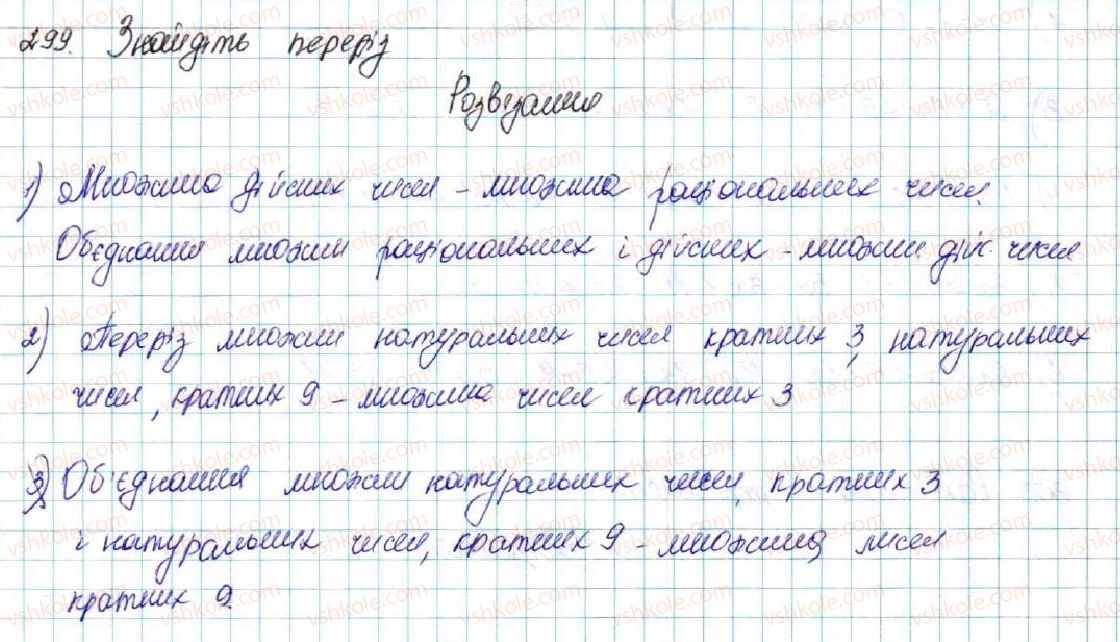 299. Знайдіть переріз
Розв'язання
1) Множина дійсних чисел - множина раціональних чисел.
Об'єднання множин раціональних і дійсних - множин дійс. чисел
2) Переріз множин натуральних чисел кратних 3, натуральних
чисел, кратних 9 - множина чисел кратних 3
3) Об'єднання множин натуральних чисел, кратних 3
і натуральних чисел, кратних 9 - множина чисел
кратних 9.